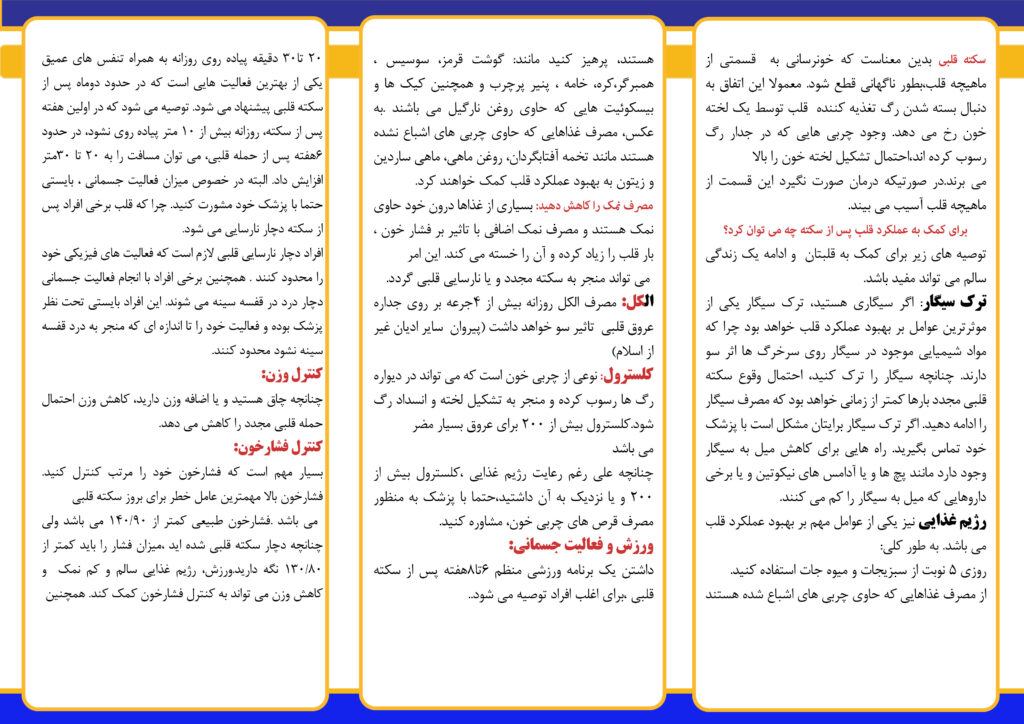 سکته قلبی بدین معناست که خونرسانی به قسمتی از
ماهیچه قلب،بطور ناگهانی قطع شود. معمولا این اتفاق به
دنبال بسته شدن رگ تغذیه کننده قلب توسط یک لخته
خون رخ می دهد. وجود چربی هایی که در جدار رگ
رسوب کرده اند،احتمال تشکیل لخته خون را بالا
می برند.در صورتیکه درمان صورت نگیرد این قسمت از
ماهیچه قلب آسیب می بیند.
برای کمک به عملکرد قلب پس از سکته چه می توان کرد؟
توصیه های زیر برای کمک به قلبتان و ادامه یک زندگی
سالم می تواند مفید باشد.
ترک سیگار: اگر سیگاری هستید، ترک سیگار یکی از
موثرترین عوامل بر بهبود عملکرد قلب خواهد بود چرا که
مواد شیمیایی موجود در سیگار روی سرخرگ ها اثر سو
دارند. چنانچه سیگار را ترک کنید، احتمال وقوع سکته
قلبی مجدد بارها کمتر از زمانی خواهد بود که مصرف سیگار
را ادامه دهید. اگر ترک سیگار برایتان مشکل است با پزشک
خود تماس بگیرید. راه هایی برای کاهش میل به سیگار
وجود دارد مانند پچ ها و یا آدامس های نیکوتین و یا برخی
داروهایی که میل به سیگار را کم می کنند.
رژیم غذایی نیز یکی از عوامل مهم بر بهبود عملکرد قلب
می باشد. به طور کلی:
روزی ۵ نوبت از سبزیجات و میوه جات استفاده کنید.
از مصرف غذاهایی که حاوی چربی های اشباع شده هستند
هستند، پرهیز کنید مانند: گوشت قرمز، سوسیس ،
همبرگر،کره، خامه ، پنیر پرچرب و همچنین کیک ها و
بیسکوئیت هایی که حاوی روغن نارگیل می باشند .به
عکس، مصرف غذاهایی که حاوی چربی های اشباع نشده
هستند مانند تخمه آفتابگردان، روغن ماهی، ماهی ساردین
و زیتون به بهبود عملکرد قلب کمک خواهند کرد.
مصرف نمک را کاهش دهید: بسیاری از غذاها درون خود حاوی
نمک هستند و مصرف نمک اضافی با تاثیر بر فشار خون ،
بار قلب را زیاد کرده و آن را خسته می کند. این امر
می تواند منجر به سکته مجدد و یا نارسایی قلبی گردد.
الکل: مصرف الکل روزانه بیش از ۴جرعه بر روی جداره
عروق قلبی تاثیر سو خواهد داشت (پیروان سایر ادیان غیر
از اسلام)
کلسترول: نوعی از چربی خون است که می تواند در دیواره
رگ ها رسوب کرده و منجر به تشکیل لخته و انسداد رگ
شود.کلسترول بیش از ۲۰۰ برای عروق بسیار مضر
می باشد
چنانچه علی رغم رعایت رژیم غذایی ،کلسترول بیش از
۲۰۰ و یا نزدیک به آن داشتید،حتما با پزشک به منظور
مصرف قرص های چربی خون، مشاوره کنید.
ورزش و فعالیت جسمانی:
داشتن یک برنامه ورزشی منظم ۶تا۸هفته پس از سکته
قلبی ،برای اغلب افراد توصیه می شود..
۲۰ تا۳۰ دقیقه پیاده روی روزانه به همراه تنفس های عمیق
یکی از بهترین فعالیت هایی است که در حدود دوماه پس از
سکته قلبی پیشنهاد می شود. توصیه می شود که در اولین هفته
پس از سکته، روزانه بیش از ۱۰ متر پیاده روی نشود، در حدود
۶هفته پس از حمله قلبی، می توان مسافت را به ۲۰ تا ۳۰متر
افزایش داد. البته در خصوص میزان فعالیت جسمانی ، بایستی
حتما با پزشک خود مشورت کنید. چرا که قلب برخی افراد پس
از سکته دچار نارسایی می شود.
افراد دچار نارسایی قلبی لازم است که فعالیت های فیزیکی خود
را محدود کنند . همچنین برخی افراد با انجام فعالیت جسمانی
دچار درد در قفسه سینه می شوند. این افراد بایستی تحت نظر
پزشک بوده و فعالیت خود را تا اندازه ای که منجر به درد قفسه
سینه نشود محدود کنند.
کنترل وزن:
چنانچه چاق هستید و یا اضافه وزن دارید، کاهش وزن احتمال
حمله قلبی مجدد را کاهش می دهد.
کنترل فشارخون:
بسیار مهم است که فشارخون خود را مرتب کنترل کنید.
فشارخون بالا مهمترین عامل خطر برای بروز سکته قلبی
می باشد .فشارخون طبیعی کمتر از ۱۴۰/۹۰ می باشد ولی
چنانچه دچار سکته قلبی شده اید ،میزان فشار را باید کمتر از
۱۳۰/۸۰ نگه دارید.ورزش، رژیم غذایی سالم و کم نمک و
کاهش وزن می تواند به کنترل فشارخون کمک کند. همچنین